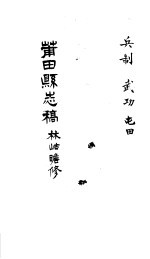 兵制 武功 屯田
莆田縣志稿 林岵瞻修